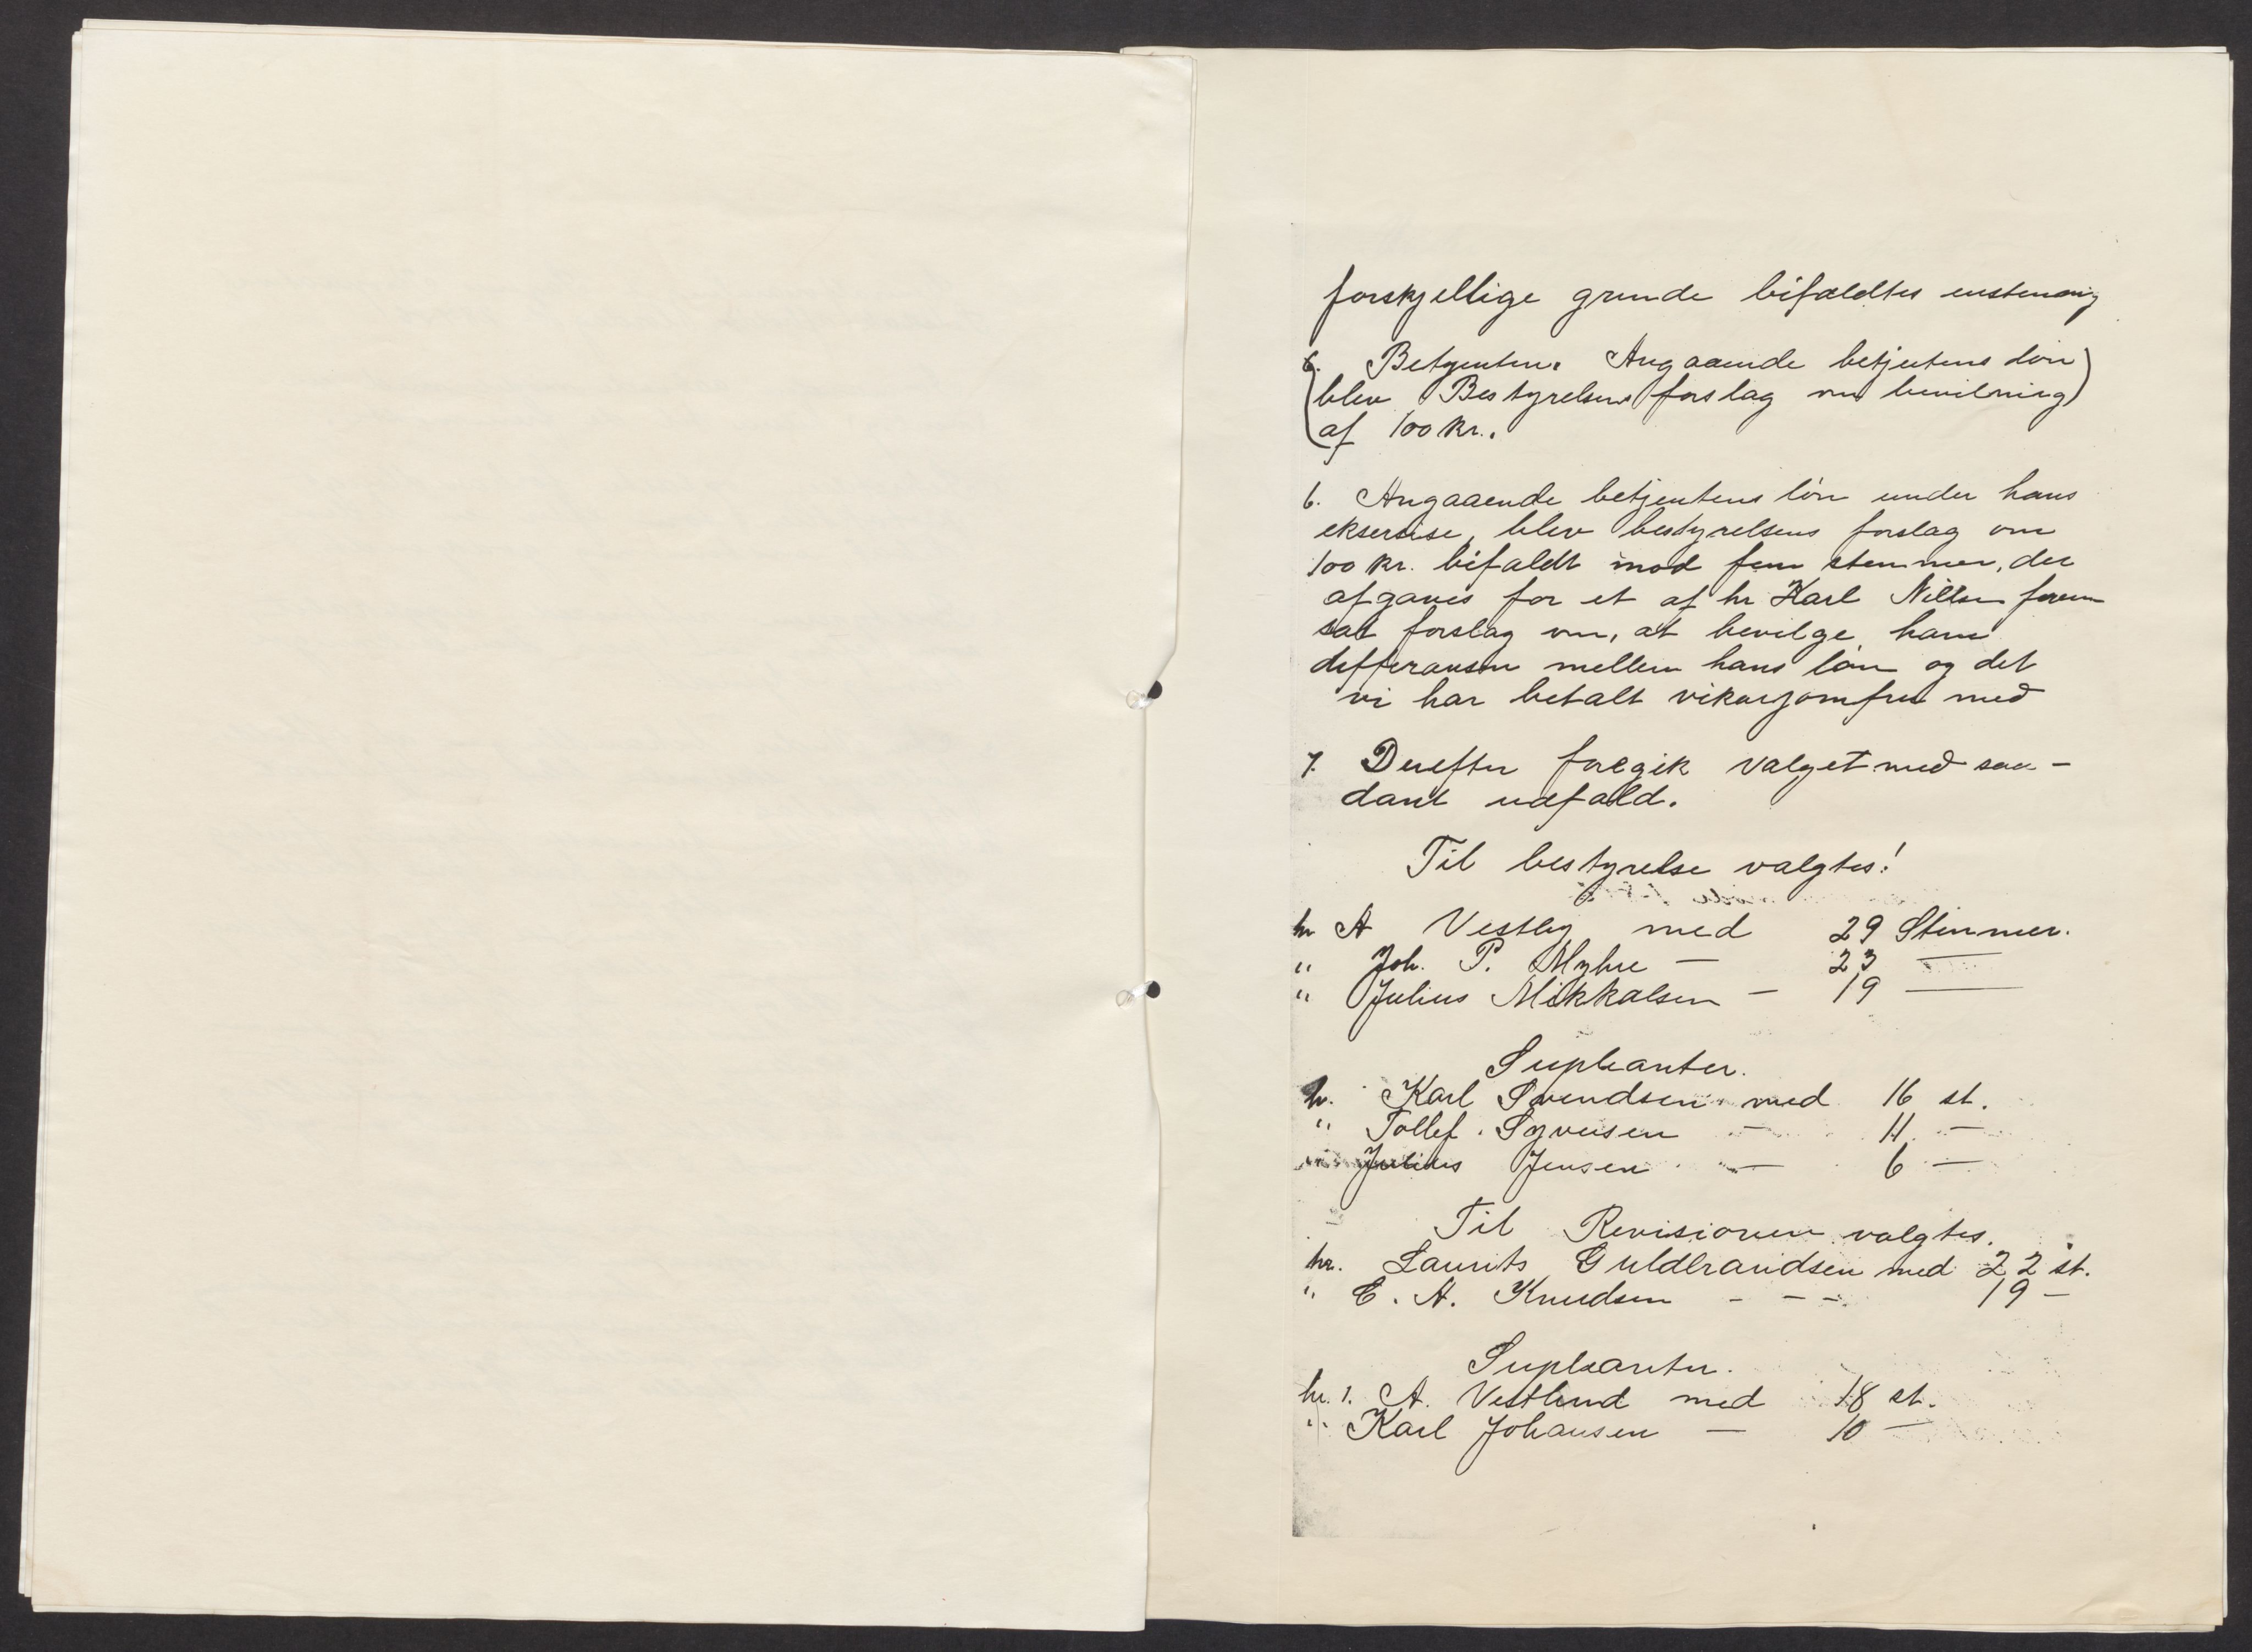 forskjellige grunde bifaldtes enstemig
6. Betjenten. Angaaende betjentens løn
blev Bestyrelsens forslag om bevilning
af 100 kr.
6. Angaaende betjentens løn under hans
eksersise, blev bestyrelsens forslag om
100 kr. bifaldt mod fem stemmer, der
afgaves for et af hr Karl Nilsen frem-
sat forslag om, at bevilge ham
differansen mellem hans løn og det
vi har betalt vikarjomfru med
7. Derefter foregik valget med saa-
dant udfald.
Til bestyrelse valgtes!
hr A Vestby med 29 Stemmer.
" Joh. P. Myhre — 23 —
" Julius Mikkalsen — 19 —
Supleanter.
hr. Karl Svendsen med 16 st.
" Tollef Syversen — 11 —
Julius Jensen — 6 —
Til Revisionen valgtes.
hr. Laurits Guldbrandsen med 22 st.
" C. A. Knudsen - - - 19 –
Supleanter.
hr. 1. A. Vestlund med 18 st.
" Karl Johansen — 10 —